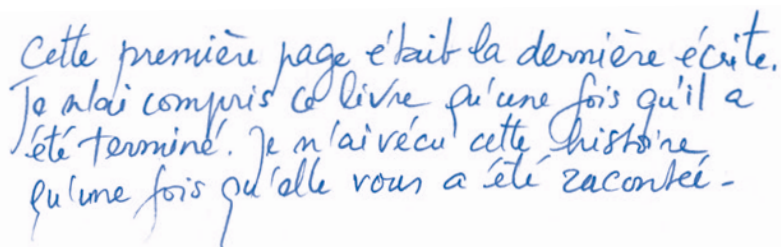 Cette première page était la dernière écrite.
Je n'ai compris ce livre qu'une fois qu'il a
été terminé. Je n'ai vécu cette histoire
qu'une fois qu'elle vous a été racontée.